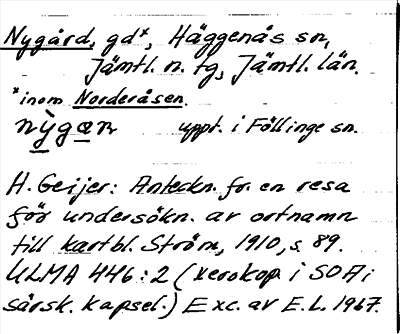 Nygård, gd*, Häggenås sn,
Jämtl. n. tg, Jämtl. län.
*inom Norderåsen.
nỳgan uppt. i Föllinge sn.
H. Geijer: Anteckn. fr. en resa
för undersökn. av ortnamn
till kartbl. Ström, 1910, s. 89.
ULMA 446:2 (xerokop. i SOFI i
särsk. kapsel.) Exc. av E.L. 1967.